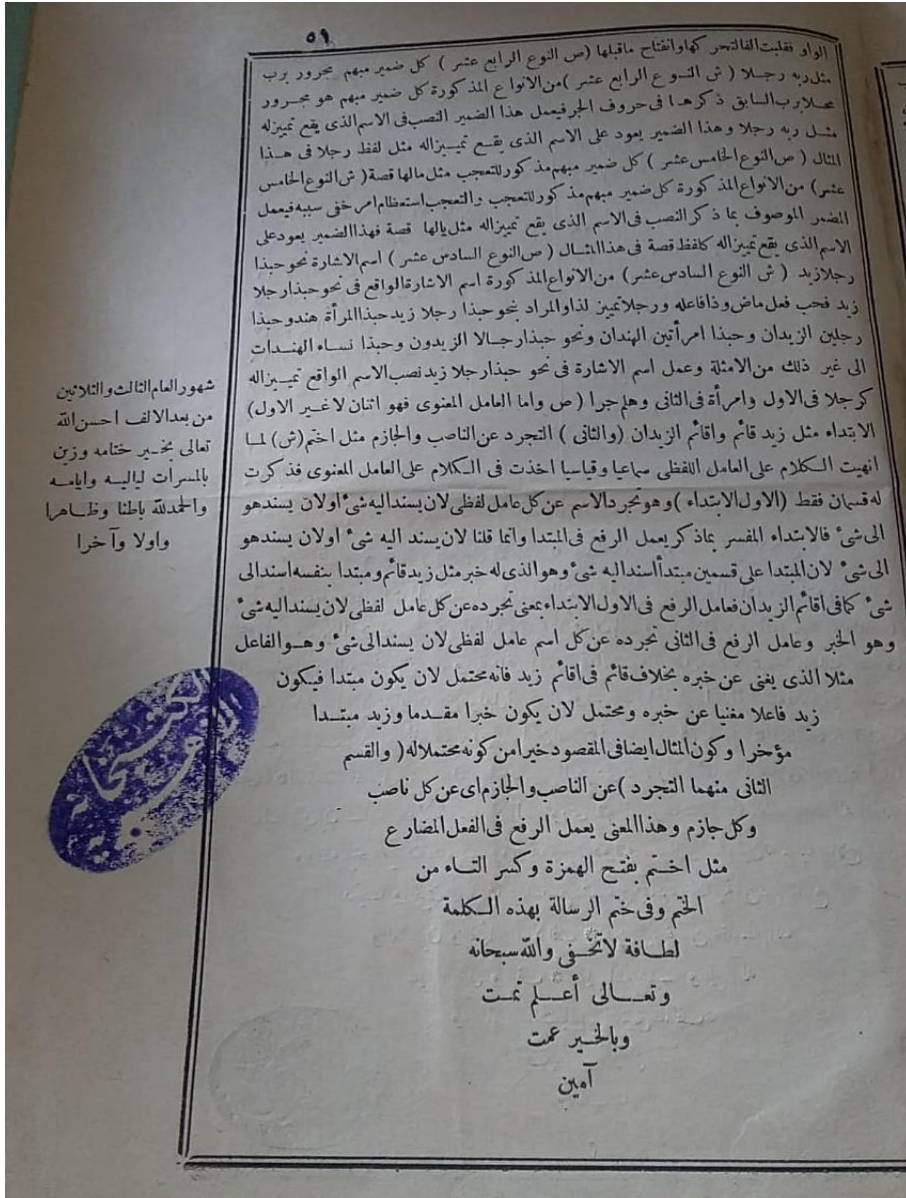 ٥٩
الواو فقلبت الفا لتحركها وانفتاح ماقبلها (ص النوع الرابع عشر ) كل ضمير مبهم مجرور برب
مثل ربه رجلا ( ش النوع الرابع عشر ) من الانواع المذكورة كل ضمير مبهم هو مجرور
محلا برب السابق ذكرها فى حروف الجر فيعمل هذا الضمير النصب فى الاسم الذى يقع تمييزاله
مثل ربه رجلا وهذا الضمير يعود على الاسم الذى يقع تمييزاله مثل لفظ رجلا فى هذا
المثال ( ص النوع الخامس عشر ) كل ضمير مبهم مذكور للتعجب مثل مالها قصة ( ش النوع الخامس
عشر ) من الانواع المذكورة كل ضمير مبهم مذكور للتعجب والتعجب استعظام امر خفى سببه فيعمل
المضمر الموصوف بما ذكر النصب فى الاسم الذى يقع تمييزاله مثل يالها قصة فهذا الضمير يعود على
الاسم الذى يقع تمييزاله كلفظ قصة فى هذا المثال ( ص النوع السادس عشر ) اسم الاشارة نحو حبذا
رجلا زيد ( ش النوع السادس عشر ) من الانواع المذكورة اسم الاشارة الواقع فى نحو حبذا رجلا
زيد فحب فعل ماض وذا فاعله ورجلا تمييز لذا والمراد بنحو حبذا رجلا زيد حبذا المرأة هند وحبذا
رجلين الزيدان وحبذا امرأتين الهندان ونحو حبذا رجالا الزيدون وحبذا نساء الهندات
الى غير ذلك من الامثلة وعمل اسم الاشارة فى نحو حبذا رجلا زيد نصب الاسم الواقع تمييزاله
كرجلا فى الاول وامرأة فى الثانى وهلم جرا ( ص واما العامل المعنوى فهو اثنان لا غير الاول)
الابتداء مثل زيد قائم واقائم الزيدان (والثانى ) التجرد عن الناصب والجازم مثل اختم (ش) لما
انهيت الكلام على العامل اللفظى سماعيا وقياسيا اخذت فى الكلام على العامل المعنوى فذكرت
له قسمان فقط (الاول الابتداء ) وهو تجرد الاسم عن كل عامل لفظى لان يسند اليه شئ اولان يسند هو
الى شئ فالابتداء المفسر بماذكر يعمل الرفع فى المبتدا وانما قلنا لان يسند اليه شئ اولان يسند هو
الى شئ لان المبتدا على قسمين مبتدأ اسند اليه شئ وهو الذى له خبر مثل زيد قائم ومبتدا بنفسه اسند الى
شئ كما فى اقائم الزيدان فعامل الرفع فى الاول الابتداء بمعنى تجرده عن كل عامل لفظى لان يسند اليه شئ
وهو الخبر وعامل الرفع فى الثانى تجرده عن كل اسم عامل لفظى لان يسند الى شئ وهو الفاعل
مثلا الذى يغنى عن خبره بخلاف قائم فى اقائم زيد فانه محتمل لان يكون مبتدا فيكون
زيد فاعلا مغنيا عن خبره ومحتمل لان يكون خبرا مقدما وزيد مبتدا
مؤخرا وكون المثال ايضا فى المقصود خير امن كونه محتملاله ( والقسم
الثانى منهما التجرد ) عن الناصب والجازم اى عن كل ناصب
وكل جازم وهذا المعنى يعمل الرفع فى الفعل المضارع
مثل اختم بفتح الهمزة وكسر التاء من
الختم وفى ختم الرسالة بهذه الكلمة
لطافة لا تخفى والله سبحانه
وتعالى أعلم تمت
وبالخير عمت
آمين
شهور العام الثالث والثلاثين
من بعد الالف احسن الله
تعالى بخير ختامه وزين
بالمسرات لياليه وايامه
والحمدلله باطنا وظاهرا
واولا وآخرا